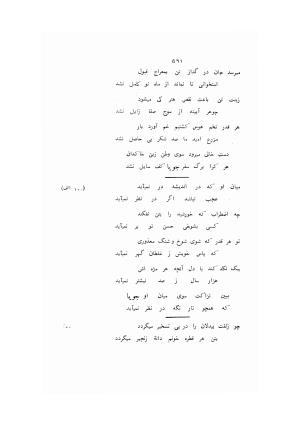 ۵۶۱
میرسد جان در گداز تن بمعراج قبول
استخوانی تا نماند از ماه نو کامل نشد
زینت تن باعث نقص هنر کی میشود
جوهر آیینه از موج صفا زایل نشد
هر قدر تخم هوس کشتیم غم آورد بار
مزرع امید ما صد شکر بی حاصل نشد
دست خالی میرود سوی وطن زین خاکدان
هر کرا برگ سفر جویا بکف سایل نشد
میان او که در اندیشه در نمی‌آید
عجب نباشد اگر در نظر نمی‌آید
چه اضطراب که خورشید را بتن نفکند
کسی بشوخی حسن تو بر نمی‌آید
تو هر قدر که شوی شوخ و شنگ معذوری
که پاس خویش ز غلطان گهر نمی‌آید
بیک نگاه کند با دل آنچه هر مژه اش
هزار سال ز صد نیشتر نمی‌آید
ببین نزاکت موی میان او جویا
که همچو تار نگه در نظر نمی‌آید
چو زلفت بیدلان را در پی تسخیر میگردد
بتن هر قطره خونم دانهٔ زنجیر میگردد